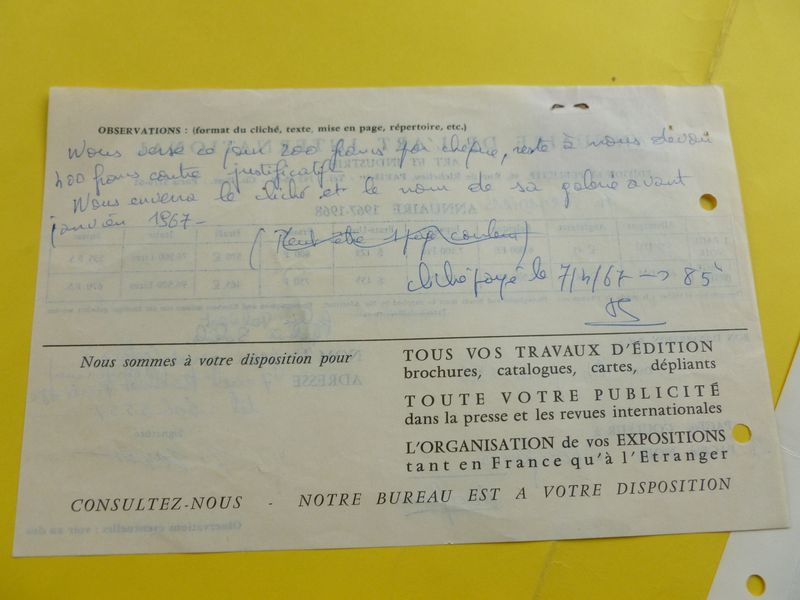 OBSERVATIONS : (format du cliché, texte, mise en page, répertoire, etc.)
Nous verse ce jour 200 francs par chèque, reste à nous devoir
400 francs contre justificatif
Nous enverra le cliché et le nom de sa galerie avant
janvier 1967 -
(Peut être 1 page couleur)
cliché payé le 7/4/67 → 85
Nous sommes à votre disposition pour
TOUS VOS TRAVAUX D'ÉDITION
brochures, catalogues, cartes, dépliants
TOUTE VOTRE PUBLICITÉ
dans la presse et les revues internationales
L'ORGANISATION de vos EXPOSITIONS
tant en France qu'à l'Etranger
CONSULTEZ-NOUS - NOTRE BUREAU EST A VOTRE DISPOSITION